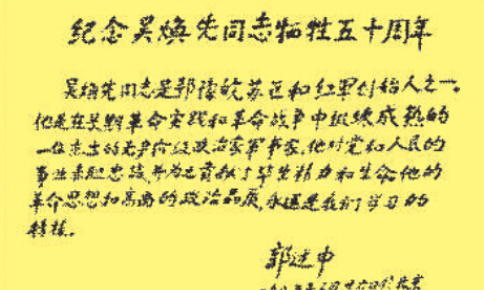 纪念吴焕先同志牺牲五十周年
吴焕先同志是鄂豫皖苏区和红军创始人之一。
他是在长期革命实践和革命战争中锻炼成熟的
一位杰出的无产阶级政治家军事家,他对党和人民的
事业赤胆忠诚,并为之贡献了毕生精力和生命他的
革命思想和高尚的政治品质,永远是我们学习的
楷模。
郭述申